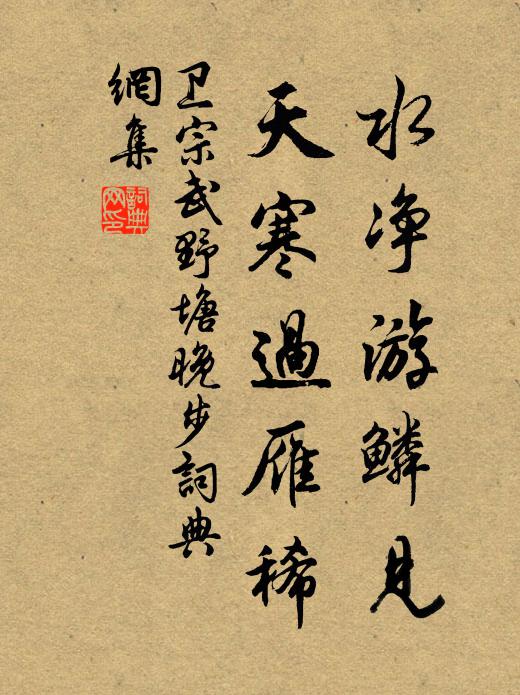 水净游鳞见
天寒過雁稀
卫宗武野塘晚步詞典
網集
詞典
网印